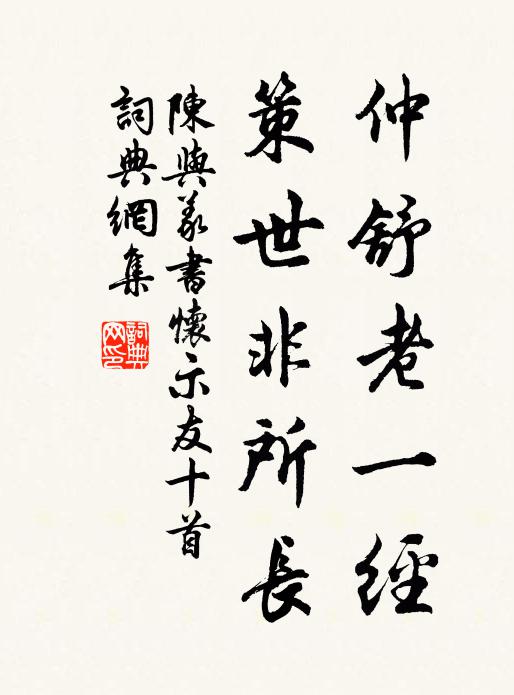 仲舒老一經
策世非所長
陳與義書懷示友十首
詞典網集
詞典網印